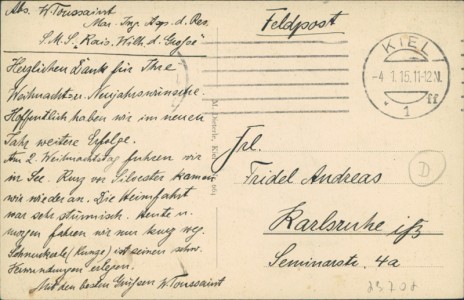 Abs. W. Toussaint
Mar. Ing. Asp. d. Res.
S.M.S. "Kais. Wilh. d. Große"
Feldpost
KIEL
-4.1.15.11-12N.
* 1 ff
Herzlichen Dank für Ihre
Weihnachts u. Neujahrswünsche.
Hoffentlich haben wir im neuen
Jahr weitere Erfolge.
Am 2. Weihnachtstag fuhren wir
in See. Kurz vor Silvester kamen
wir wieder an. Die Heimfahrt
war sehr stürmisch. Heute u.
morgen fahren wir nur kurz weg.
(Kunges) ist seinen schw.
erlegen.
Mit den besten Grüßen W. Toussaint
Frl.
Fridel Andreas
Karlsruhe i/B
Seminarstr. 4a
D